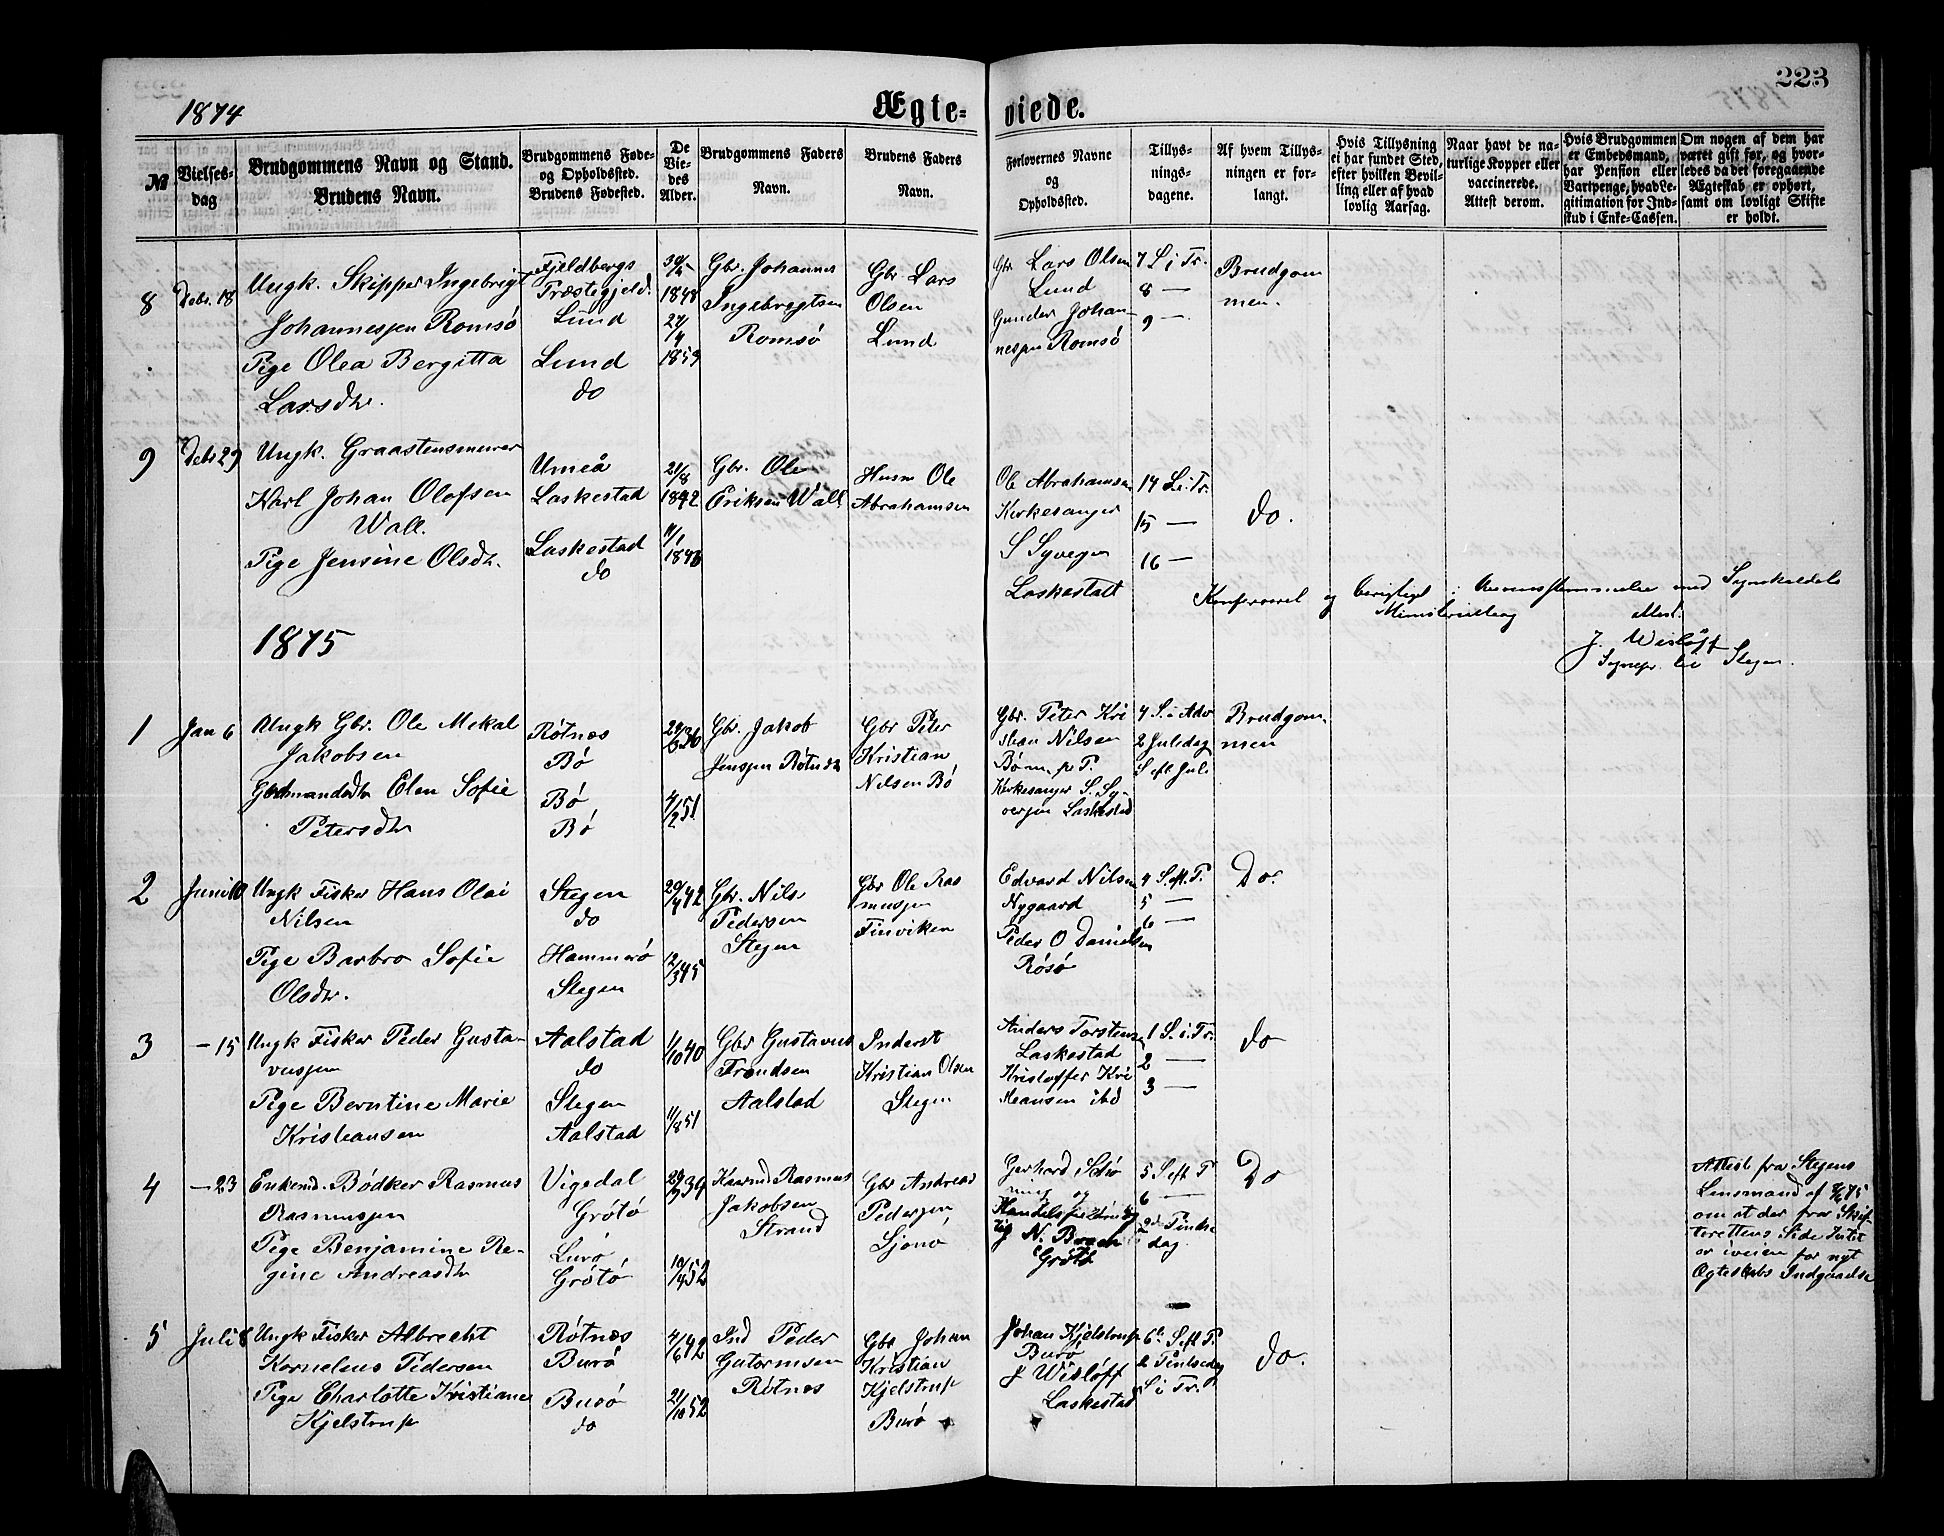 223
1874
Ægte-
viede.
№
Vielses-
dag
Brudgommens Navn og Stand.
Brudens Navn.
Brudgommens Føde-
og Opholdssted.
Brudens Fødested.
De
Vie-
des
Alder.
Brudgommens Faders
Navn.
Brudens Faders
Navn.
Forlovernes Navne
og
Opholdssted.
Tillys-
nings-
dagene.
Af hvem Tillys-
ningen er for-
langt.
Hvis Tillysning
ei har fundet Sted,
efter hvilken Bevil-
ling eller af hvad
lovlig Aarsag.
Naar havt de na-
turlige Kopper eller
vaccinerede.
Attest derom.
Hvis Brudgommen
er Embedsmand,
har Pension eller
Vartpenge, hvad Le-
gitimation for Ind-
skud i Enke-Cassen.
Om nogen af dem har
været gift før, og hvor-
ledes da det foregaaende
Ægteskab er ophørt,
samt om lovligt Skifte
er holdt.
8
Debr. 18
Ungk. Skipper Ingebrigt
Johannesen Romsö
Pige Olea Bergitta
Larsdtr.
Fjeldbergs
Præstegjeld.
Lund
Lund
do
30/5
1848
27/4
1859
Gbr. Johannes
Ingebregtsen
Romsö
Gbr. Lars
Olsen
Lund
Gbr Lars Olsen
Lund
Gunder Johan-
nesen Romsö
7 S. i Tr.
8 —
9 —
Brudgom
men.
9
Debr 29
Ungk. Graastensmurer
Karl Johan Olofsen
Wall.
Pige Jensine Olsdtr.
Umeå
Laskestad
Laskestad
do
21/8
1842
11/1
1846
Gbr. Ole
Eriksen Wall
Husm Ole
Abrahamsen
Ole Abrahamsen
Kirkesanger
S Syvegen
Laskestatt
14 S. i. Tr.
15 —
16 —
do.
Konfereret og berigtiget i Overensstemmelse med Sognekaldets
Ministerialbog
Attest.
J. Wisløff
Sognepr. til Stegen.
1875
1
Jan 6
Ungk Gbr. Ole Mekal
Jakobsen
Gaardmandsdtr Elen Sofie
Petersdtr
Rötnæs
Bö
Bö
Bö
29/6 36
4/2 51
Gbr. Jakob
Jensen Rötnæs
Gbr Peter
Kristian
Nilsen Bö
Gbr. Peter Kri
stian Nilsen
Bö
Kirkesanger S. Sy-
versen Laskestad
4 S. i Adv
2 Juledag
S eft Jul
Brudgom.
men
2
Juni 10
Ungk Fisker Hans Olai
Nilsen
Pige Barbro Sofie
Olsdtr.
Stegen
do
Hammerö
Stegen
20/4 42
12/3 45
Gbr. Nils
Pedersen
Stegen
Gbr Ole Ras
mussen
Finviken
Edvard Nilsen
Nygaard
Peder O Danielsen
Rösö
4 S. eft. P.
5 —
6 —
Do.
3
— 15
Ungk Fisker Peder Gusta-
vusen
Pige Berntine Marie
Kristiansen
Aalstad
do
Stegen
Aalstad
1/10 40
11/8 51
Gbr Gustavus
Trondsen
Aalstad
Inderst
Kristian Olsen
Stegen
Anders Torstens.
Laskestad
Kristoffer Kri
stiansen ibd
1 S. i. Tr.
2 —
3 —
do
4
— 23
Enkemd. Bödker Rasmus
Rasmussen
Pige Benjamine Re-
gine Andreasdtr
Vigedal
Grötö
Lurö
Grötö
29/9 34
10/4 52
Kaarmd Rasmus
Jakobsen
Strand
Gbr Andreas
Pedersen
Sjonö
Gerhard Schö
ning og
N. Brach
Grötö
5 S eft P
6 —
2d Pintse
dag.
Do
Attest fra Stegens
Lensmand af 75
om at der fra Skif-
terettens Side Intet
er iveien for nyt
Ægteskabs Indgaaelse
5
Juli 8
Ungk Fisker Albrecht
Kornelius Pedersen
Pige Charlotte Kristiane
Kjelstrup
Rötnæs
Burö
Burö
do
4/6 42
21/10 52
Ind Peder
Gutormsen
Rötnes
Gbr Johan
Kristian
Kjelstrup
Burö
Johan Kjelstrup
Burö
J Wislöff
Laskestad
6te S eft P.
2 Pintsedag
S i Tr.
do.